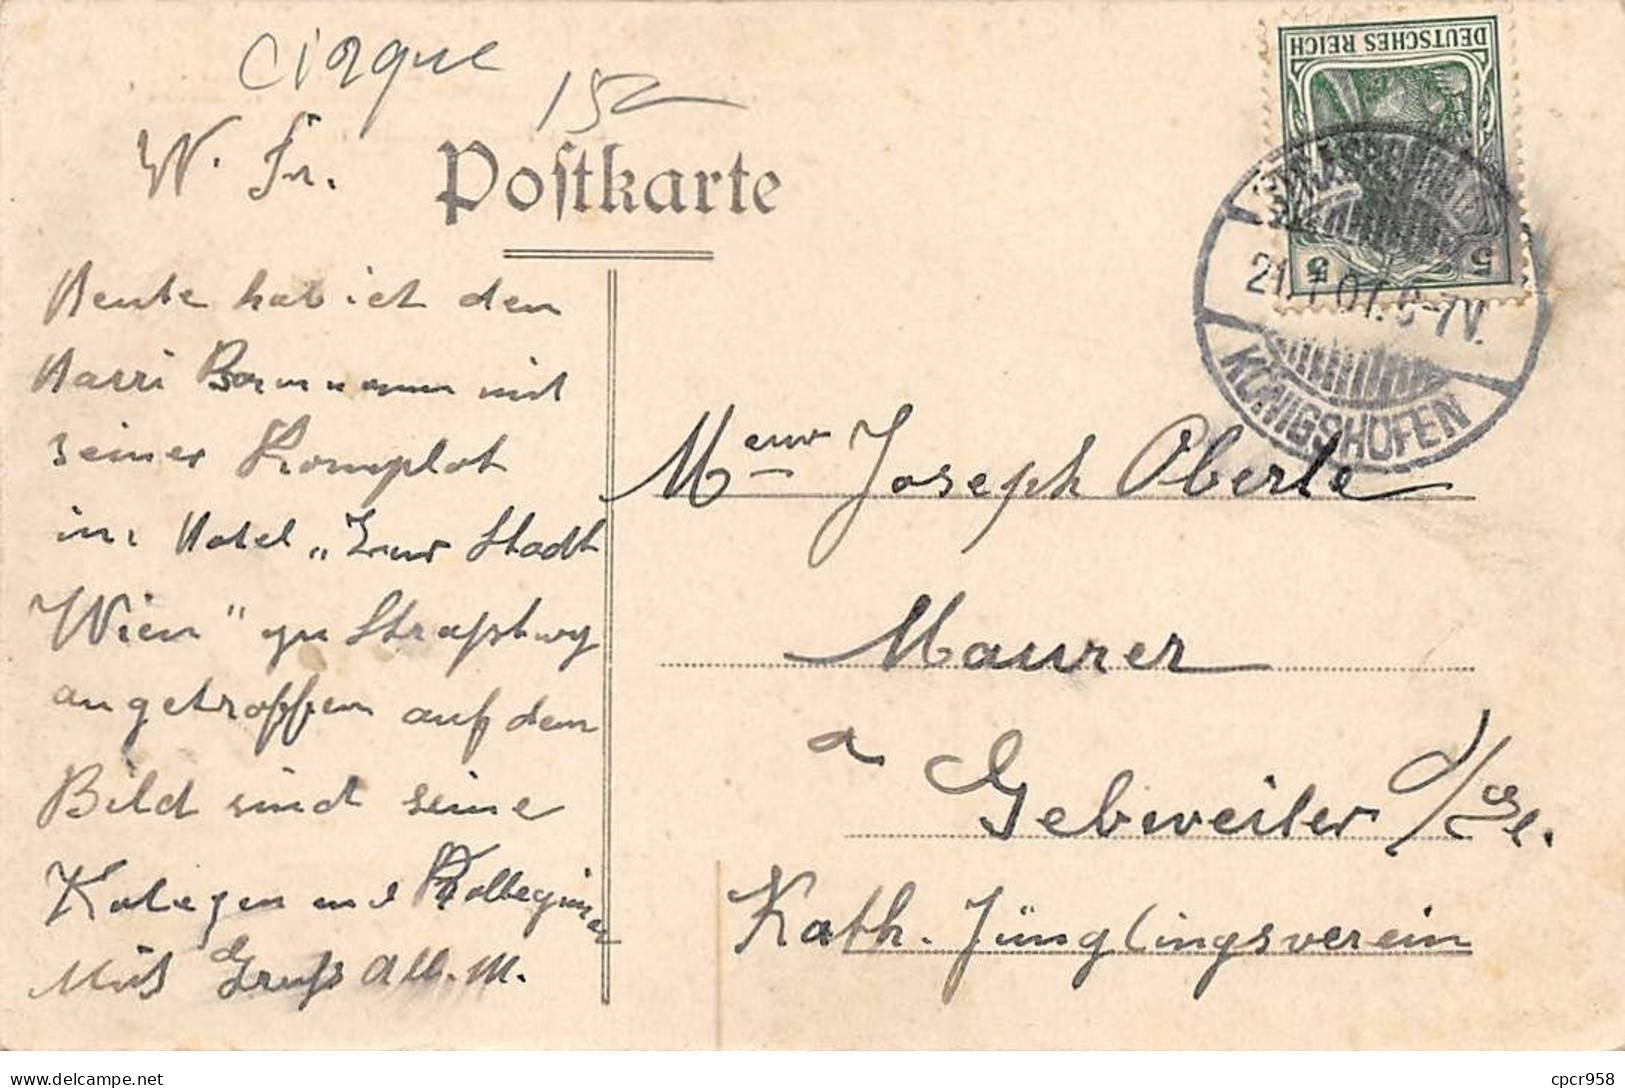 Cirque
152
W. Fr.
Postkarte
DEUTSCHES REICH
5 5
STRASSBURG
21.7.07. 6-7V.
KÖNIGSHOFEN
Heute hab ich den
Harri Barnumann mit
seiner Komplot
im Hotel „Zur Stadt
Wien" zu Straßburg
angetroffen auf dem
Bild sind seine
Kolegen und Kolleginen
Mit Gruß Alb. M.
Meur Joseph Oberle
Maurer
a Gebweiler O/Els.
Kath. Jünglingsverein
delcampe.net
cpcr958